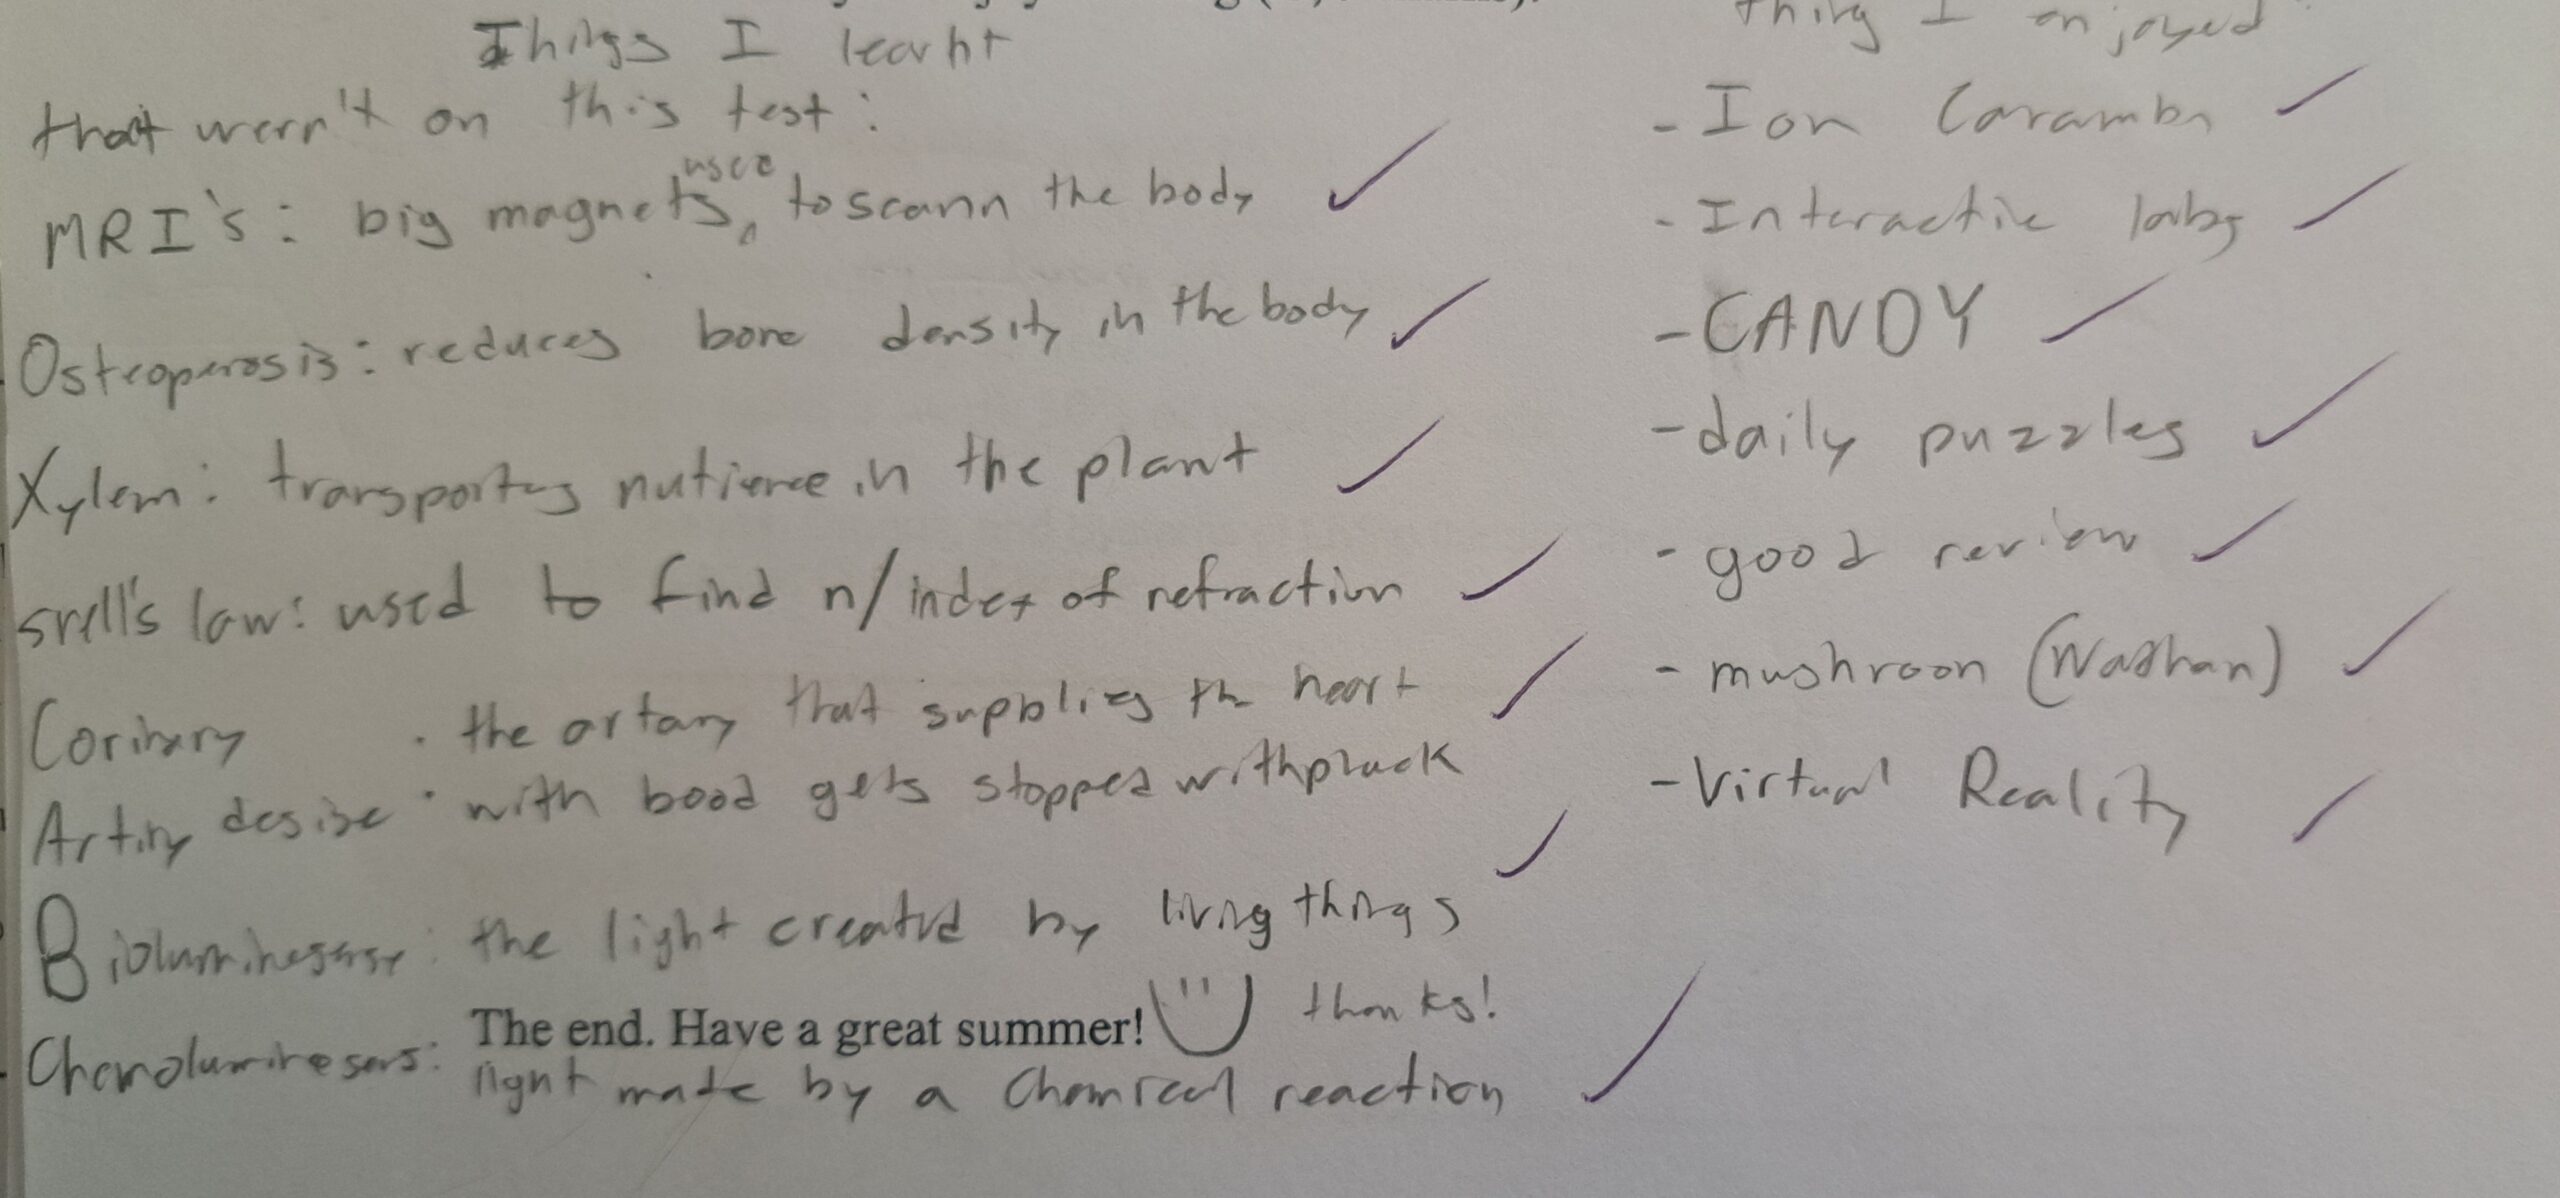 Things I learnt
that wern't on this test:
MRI's: big magnets, used to scann the body
Osteoperosis: reduces bone density in the body
Xylem: transportes nutience in the plant
snell's law: used to find n/index of refraction
Corinary
Artiry desise : the artary that supplies the heart
with bood gets stopped with pluck
Bioluminesense: the light created by living things
The end. Have a great summer! thanks!
Chemoluminesens: light made by a Chemical reaction
thing I enjoyed
- Ion Caramba
- Interactive labs
- CANDY
- daily puzzles
- good review
- mushroon (Nathan)
- Virtual Reality